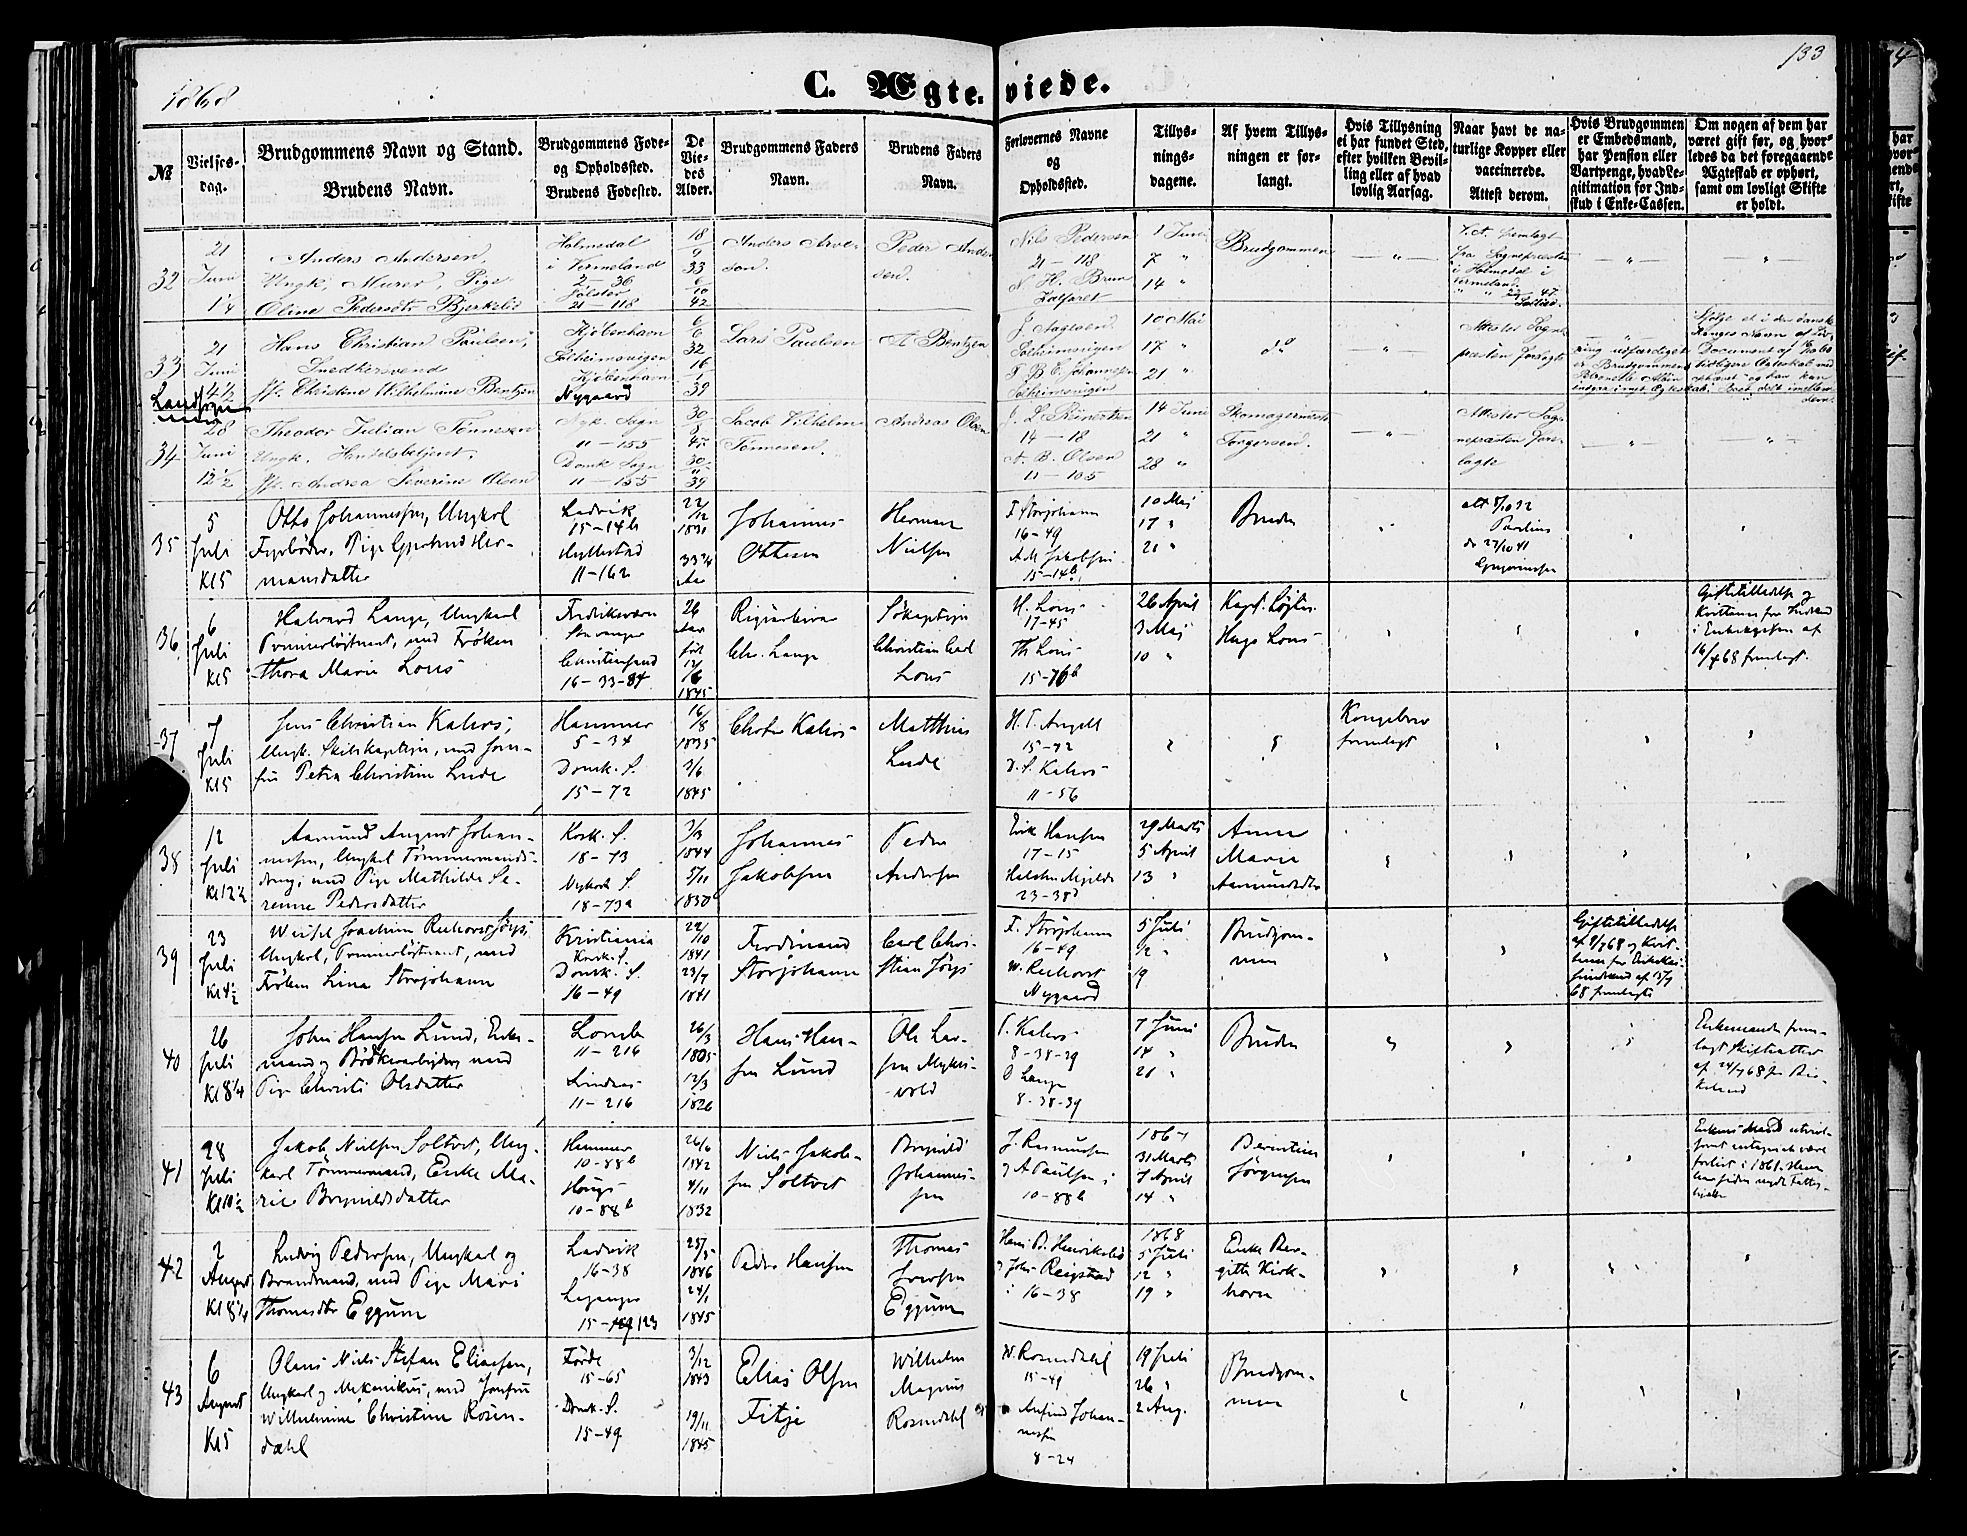 1868
C. Ægteviede.
133
№
Vielses-
dag.
Brudgommens Navn og Stand.
Brudens Navn.
Brudgommens Føde-
og Opholdssted.
Brudens Fødested.
De
Vie-
des
Alder.
Brudgommens Faders
Navn.
Brudens Faders
Navn.
Forlovernes Navne
og
Opholdssted.
Tillys-
nings-
dagene.
Af hvem Tillys-
ningen er for-
langt.
Hvis Tillysning
ei har fundet Sted,
efter hvilken Bevil-
ling eller af hvad
lovlig Aarsag.
Naar havt de na-
turlige Kopper eller
vaccinerede.
Attest derom.
Hvis Brudgommen
er Embedsmand,
har Pension eller
Vartpenge, hvad Le-
gitimation for Ind-
skud i Enke-Cassen.
Om nogen af dem har
været gift før, og hvor-
ledes da det foregaaende
Ægteskab er ophørt,
samt om lovligt Skifte
er holdt.
32
21
Juni
Anders Andersen,
Ungk, Murer, Pige
Oline Pedersdtr Bjerkelid
Holmedal
i Vermeland
2 - 36
Jølster
21 - 118
18
9
33
6
10
42
Anders Arve-
son.
Peder Ander
sen.
Nils Pedersen
21 - 118
N. H. Brun
Kalfaret
1 Juni
7 "
14 "
Brudgommen
fra Sognepræsten
i Holmedal i
Vermeland
33
21
Juni
4½
Hans Christian Paulsen,
Snedkersvend
Jfr. Christine Wilhelmine Bentzen
Kjøbenhavn
Solheimsvigen
Kjøbenhavn
Nygaard
32
16
39
Lars Paulsen
A Bentzen
Solheimsvigen
J. B. C. Johannesen
Solheimsvigen
10 Mai
17 "
21 "
do
Attester Sogne
præsten forelagte
34
28
Juni
12½
Theodor Julian Tønnesen
Ungk. Handelsbetjent.
Jfr. Andrea Severine Olsen
Nyk. Sogn
11 - 155
Domk Sogn
11 - 155
30
8
45
30
39
Jacob Vilhelm
Tønnesen.
Andreas Olsen
14 - 18
A. B. Olsen
11 - 105
14 Juni
21 "
28 "
Skomagermester
Torgersen.
Attester Sog-
nepræsten fore-
lagte
35
5
Juli
Kl 5
Otto Johannessen, Ungkarl
Fyrbøder, Pige Gjertrud Her-
mansdatter
Ladvik
15-14b
Hyllestad
11-162
22
/12
1831
33 3/4
Aar
Johannes
Ottesen
Herman
Nielsen
F Storjohann
16-49
A M Jakobsen
15-14b
10 Maj
17 "
21 "
Bruden
att 8/10 32
do 27/10 41
36
6
Juli
Kl 5
Halvard Lange, Ungkarl
Premierløjtnant, med Frøken
Thora Marie Lous
Fredriksværn
Stavanger
Christiansand
16-33-84
26
Aar
født
12/
/6
1845
Rigsarkivar
Chr. Lange
Søkaptejn
Christian Carl
Lous
H. Lous
17-45
Th Lous
15-76b
26 April
3 Maj
10 "
Kapt. Løjtn.
Hugo Lous
Giftetilladelse og
Kvittering for Indskud
i Enkekassen af
16/4 68 fremlagt.
37
7
Juli
Kl 5
Jens Christian Kahrs,
Ungk. Skibskaptejn, med Jom-
fru Petra Christine Lude
Hammer
5-34
Domk. S.
15-72
16
/8
1835
2/6
1845
Christen Kahrs
Matthias
Lude
H. T. Angell
15-72
D. S. Kahrs
11-56
Kongebrev
fremlagt
38
12
Juli
Kl 12½
Aamund August Johan-
nessen, Ungkarl Tømmermands-
dreng, med Pige Mathilde Se-
verine Pedersdatter
Korsk. S.
18-73
Nykirk S.
18-73a
3/3
1844
5/11
1850
Johannes
Jakobsen
Peder
Andersen
Erik Hansen
17-15
Halsten Mjelde
23-38d
29 Marts
5 April
13 "
Anna
Maria
Aamundsdtr
39
23
Juli
Kl 4½
Joachim Rieckhorst Jøys,
Ungkarl, Premierløjtnant, med
Frøken Lina Storjohann
Kristiania
Korsk. S.
Domk. S.
16-49
22/
/10
1841
23/7
1841
Ferdinand
Storjohann
Carl Chri-
stian Jøys
F. Storjohann
16-49
Nygaard
5 Juli
12 "
19
Brudgom-
men
Giftetilladelse
af 9/7 68 og Kvit-
tering for Enkekas-
68 fremlagte
40
26
Juli
Kl 8¼
Johan Hansen Lund, Enke-
mand og Bødkerarbejder, med
Pige Christi Olsdatter
11-216
Lindaas
11-216
26/3
1805
12/3
1826
Hans Han-
sen Lund
Ole Lar-
sen Myking-
vold
T. Kahrs
8-38-39
O Lange
8-38-39
7 Juni
14 "
21 "
Bruden
Enkemanden frem-
lagt skifteattest
af 24/7 68 fra
41
28
Juli
Kl 10½
Jakob Nielsen Soltvet, Ung-
karl Tømmermand, Enke Ma-
rie Brynildsdatter
Hammer
10-88b
Haugs
10-88b
26/6
1842
4/11
1832
Niels Jakob-
sen Soltvet
Brynild
Johannes-
sen
J. Rasmussen
og A Paulsen i
10-88b
1867
31 Marts
7 April
14 "
Berentine
Jørgensen
42
2
August
Kl 8¼
Ludvig Pedersen, Ungkarl og
Brandmand, med Pige Mari
Thomasdtr Eggum
Ladvik
16-38
Leganger
15- 123
25/5
1846
24/1
1845
Peder Hansen
Thomas
Iversen
Eggum
Hans B. Henriksbø
og Johs Reigstad
i 16-38
1868
5 Juli
12 "
19 "
Enke Ber-
gitte Kirk-
horn
43
6
August
Kl 5
Olaus Niels Stefan Eliassen,
Ungkarl og Mekanikus, med Jomfru
Wilhelmine Christine Rosen-
dahl
Førde
15-65
Domk. S.
15-49
3/12
1843
19/11
1845
Elias Olsen
Fitje
Wilhelm
Magnus
Rosendahl
W. Rosendahl
15-49
Anfind Johan-
nessen
8-24
19 Juli
26 "
2 Aug.
Brudgom-
men